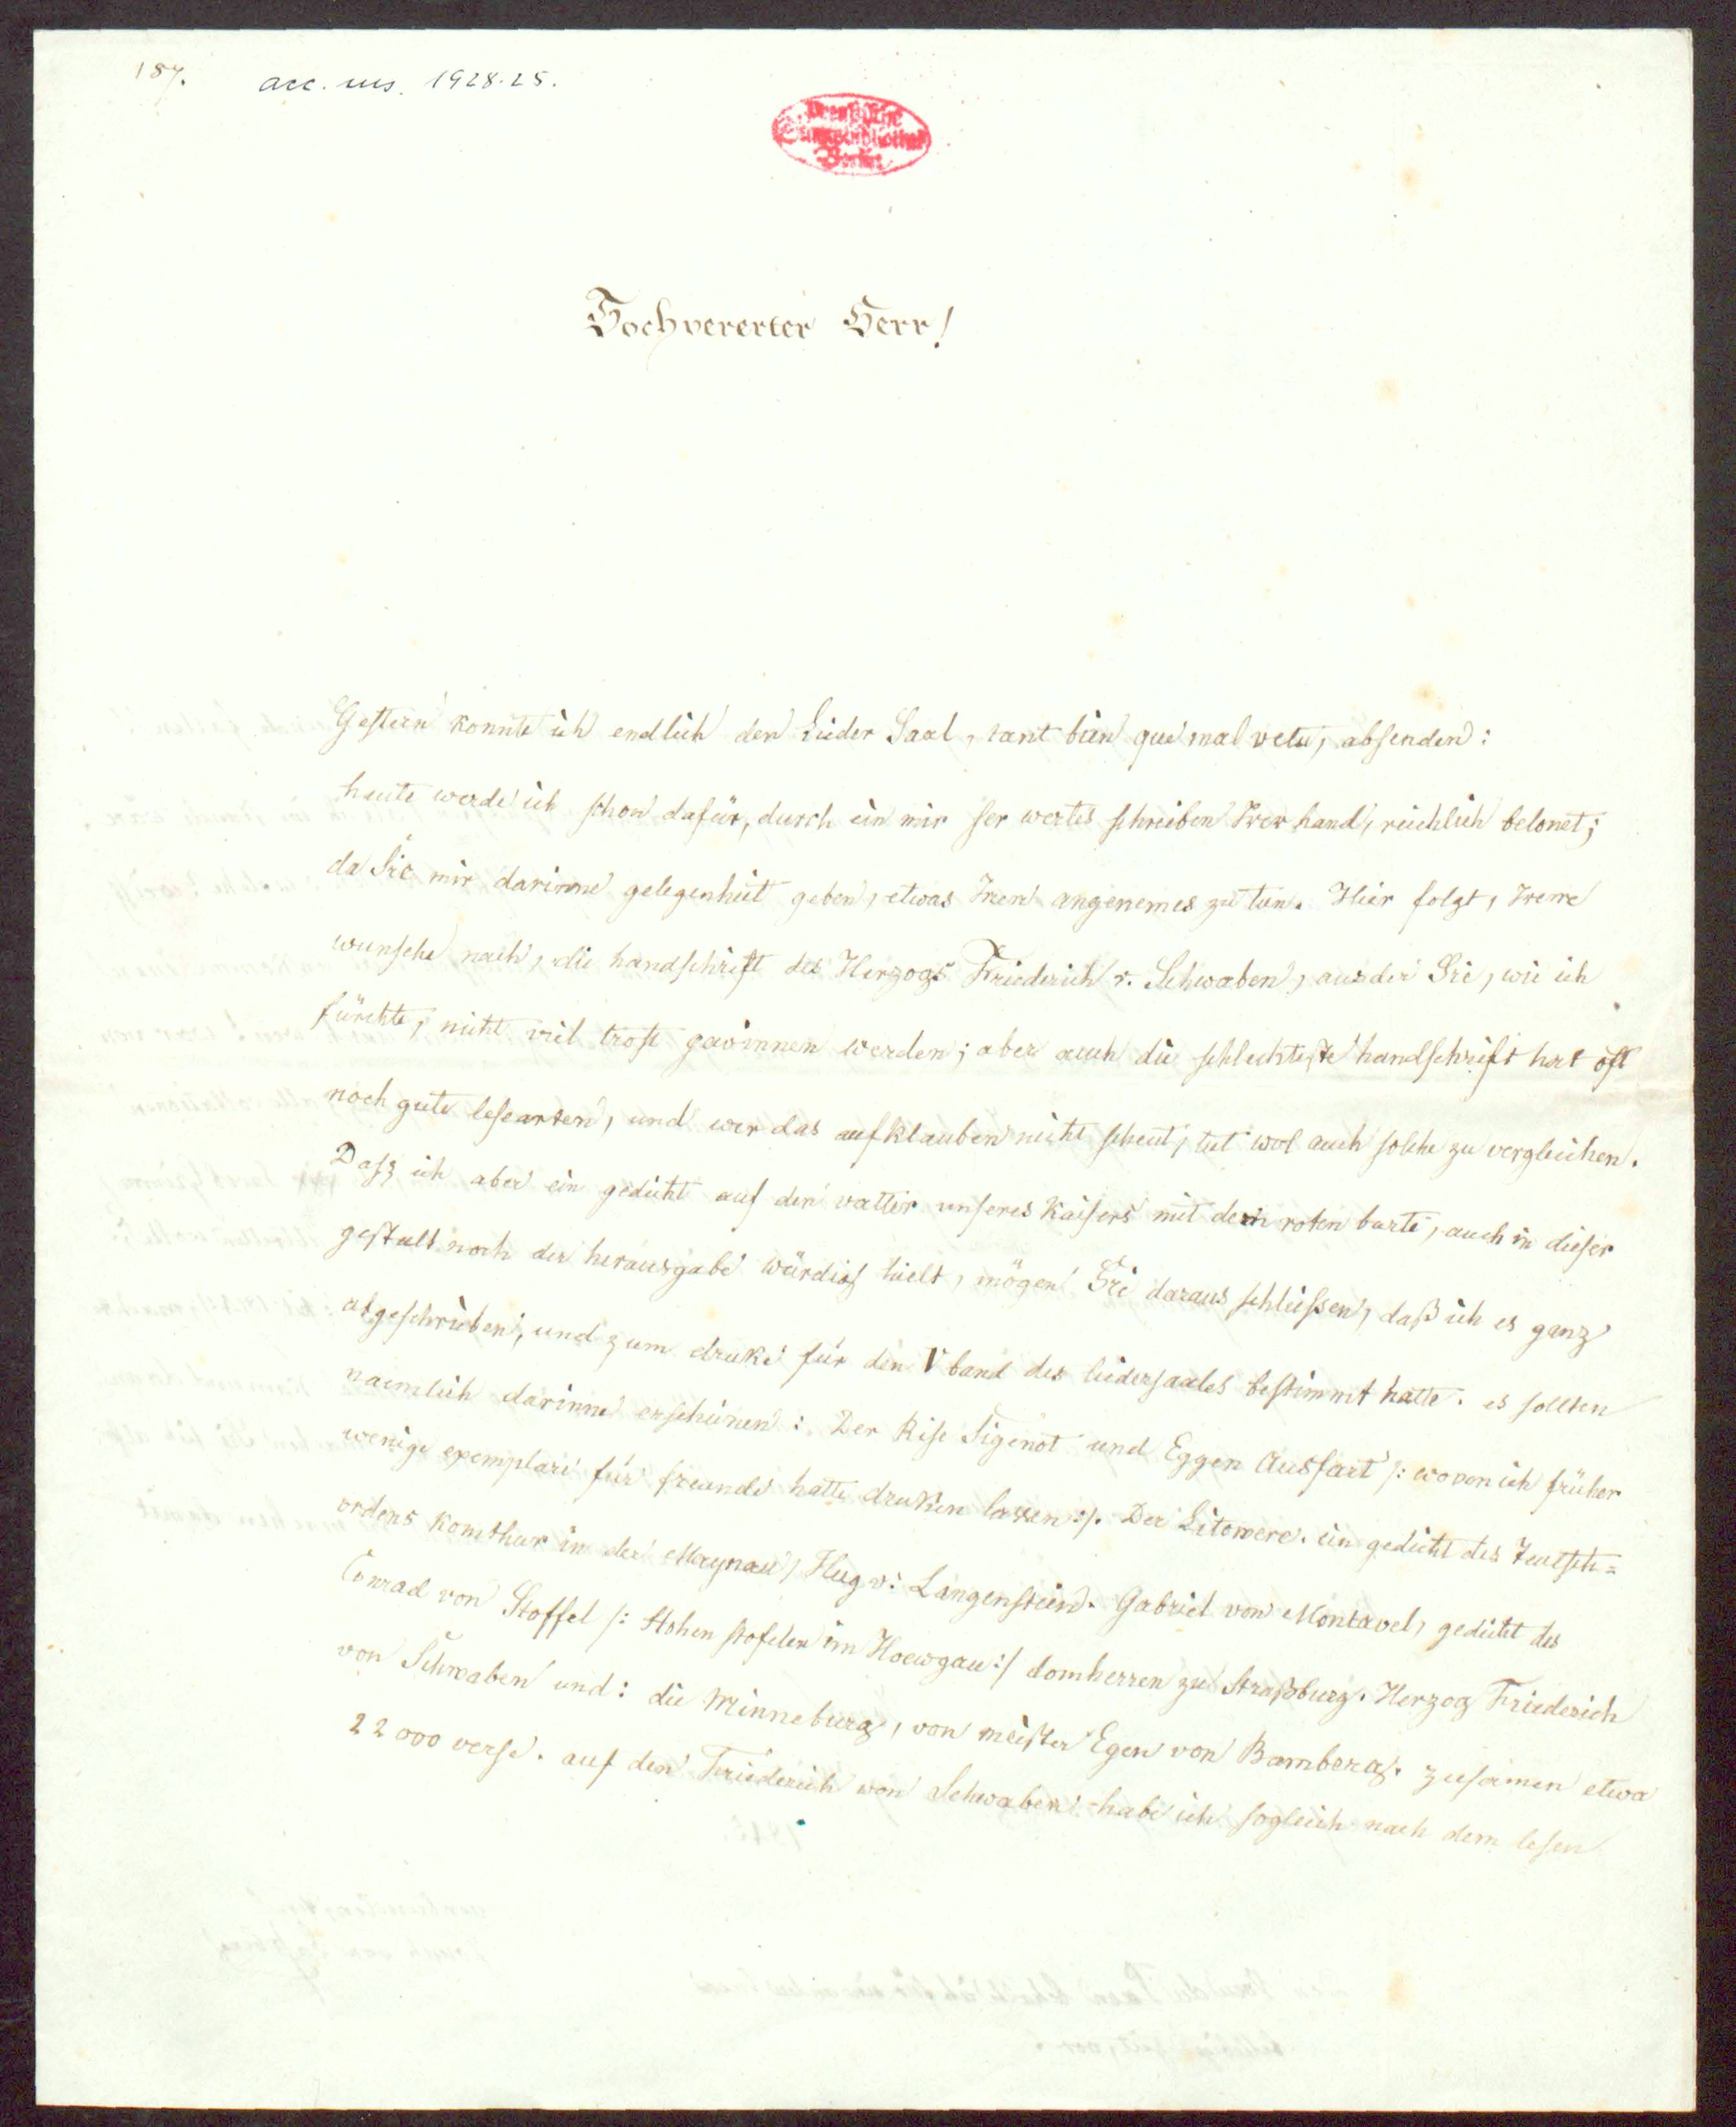 187.
acc. ms. 1928.25.
Preußische
Staatsbibliothek
Berlin
Hochvererter Herr!
Gestern konnte ich endlich den Lieder Saal, tant bien que mal vetu, absenden:
heute werde ich schon dafür, durch ein mir ser wertes schreiben Irer hand, reichlich belonet;
da Sie mir darinne gelegenheit geben, etwas Inen angenemes zu tun. Hier folgt, Ireme
wunsche nach, die handschrift des Herzogs Friederich v. Schwaben, aus der Sie, wie ich
fürchte, nicht vil trost gewinnen werden; aber auch die schlechteste handschrift hat oft
noch gute lesearten, und wer das aufklauben nicht scheut, tut wol auch solche zu vergleichen.
Dass ich aber ein gedicht auf den vatter unseres Kaisers mit dem roten barte, auch in dieser
gestalt noch der herausgabe würdig hielt, mögen Sie daraus schliessen, daß ich es ganz
abgeschriben, und zum druke für den V band des liedersaales bestimmt hatte. es sollten
naemlich darinne erscheinen: Der Rise Sigenot und Eggen Ausfart /: wovon ich früher
wenige exemplare für freunde hatte druken lassen :/. Der Litower. ein gedicht des Teutsch-
ordens komthur in der Maynau, Hug v: Langenstein. Gabriel von Montavel, gedicht des
Conrad von Stoffel /: Hohen stofelen im Hoewgau :/ domherren zu Straßburg. Herzog Friederich
von Schwaben und: die Minneburg, von meister Egen von Bamberg. zusamen etwa
22000 verse. auf den Friederich von Schwaben habe ich sogleich nach dem lesen